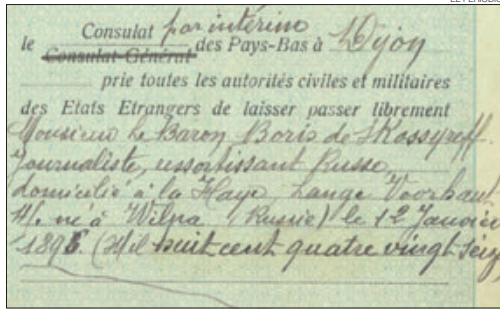 le Consulat par intérim des Pays-Bas à Dijon
Consulat-Général
prie toutes les autorités civiles et militaires
des Etats Etrangers de laisser passer librement
Monsieur le Baron Boris de Skossyreff
Journaliste, ressortissant Russe,
domicilié à la Haye, Lange Voorhout
né à Wilna (Russie) le 12 Janvier
1896. (Mil huit cent quatre vingt seize